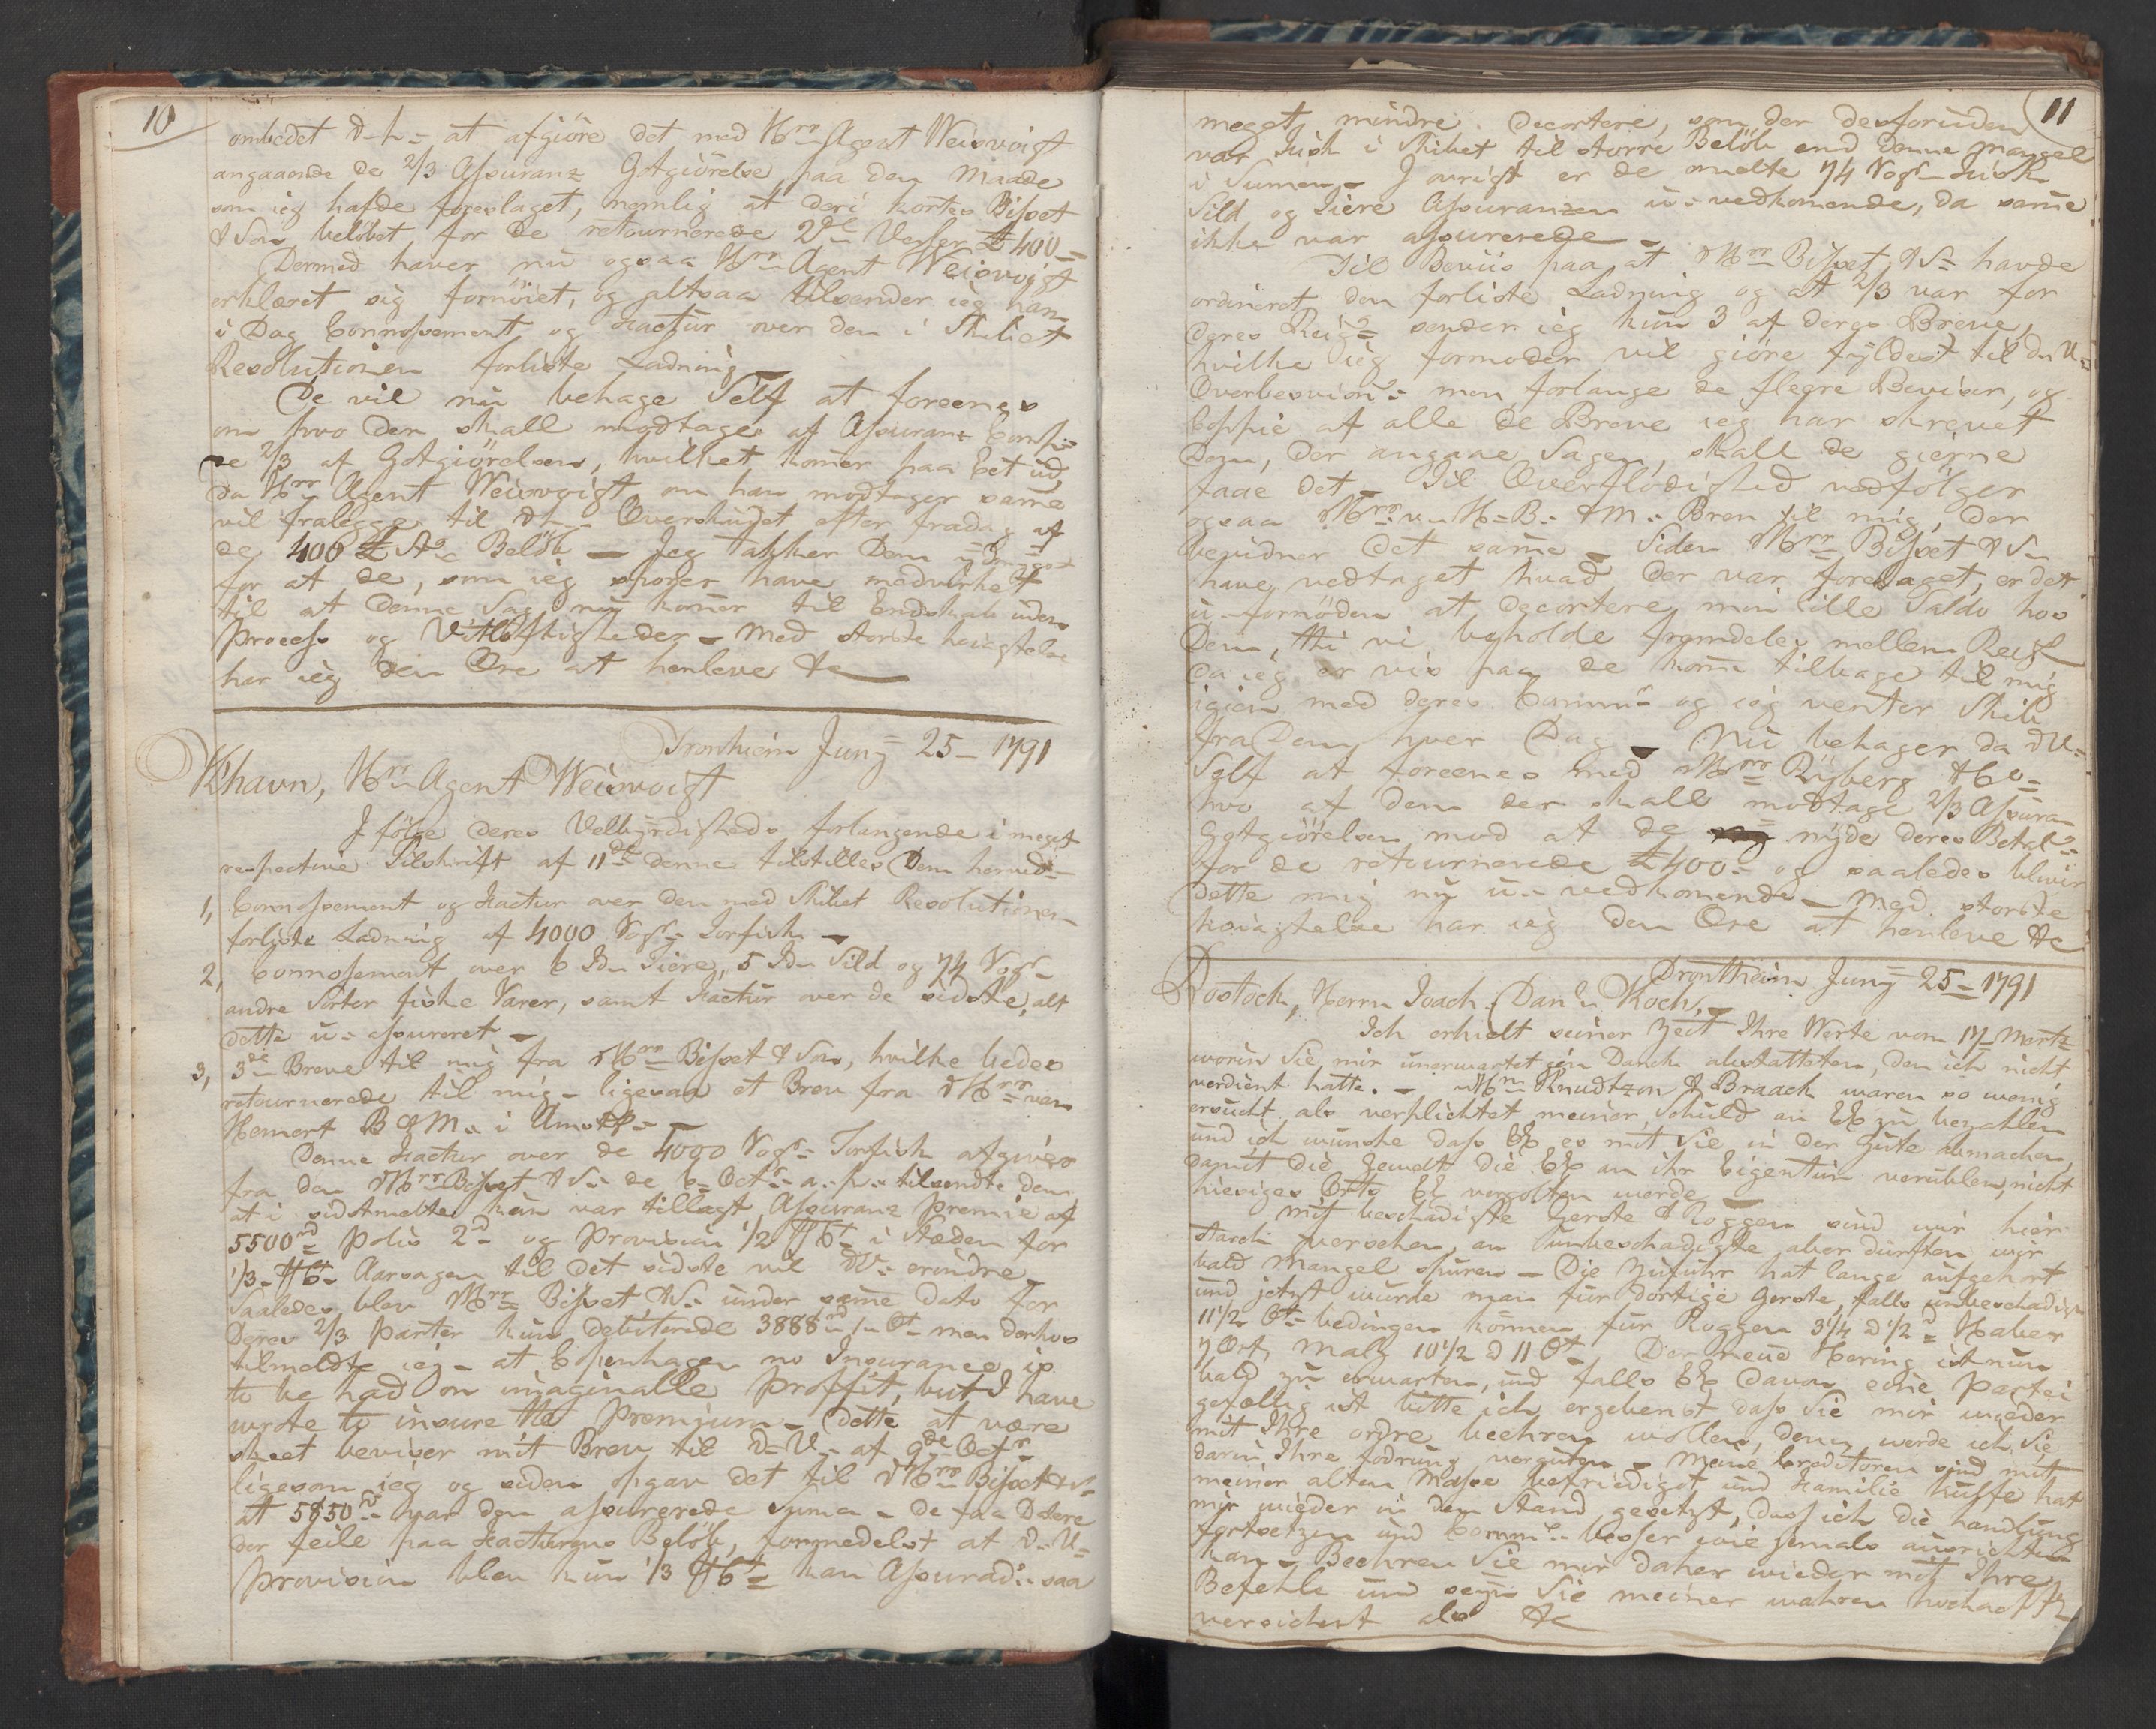 10
ombedet D. h. at afgiöre det med Hrr Agent Weisvoigt
angaaende de 2/3 Assuranz Gotgiörelse paa den Maade
som ieg hafde foreslaget, nemlig at deri kortes Bisset
& Son belöbet for de retournerede 2de Vexler £ 400
Dermed haver nu ogsaa Hrr Agent Weisvoigt
erklæret sig fornöiet, og altsaa tilsender ieg ham
i Dag Connossement og Factur over den i Skibet
Resolutionen forliste Ladning
De vil nu behage Self at foreenes
om hvo der skall modtage af Assuranz Comp:
de 2/3 af Gotgiörelsen, hvilket komer paa Eet ud
da Hrr Agent Weisvoigt om han modtager same
vil fralegge til Overskudet efter fradag af
de 400 £ St. Belöb — Jeg takker Dem
for at de, som ieg sporer have medvirket
til at denne Sag nu komer til Endskab uden
Process og Vitlöftigheder - Med storste hoiagtelse
har ieg den Ære at henleve &c
Tronhiem Juny 25 - 1791
Khavn, Hrr Agent Weisvoigt
I fölge deres Velbyrdigheds forlangende i meget
respective Tilskrift af 11de denne tilstilles Dem herved
1, Connossement og Factur over den med Skibet Resolutionen
forliste Ladning af 4000 Vogr Torfisk
2, Connossement over 6 Tdr Tiere, 5 Tdr Sild og 74 Vogr
andre Sorter fiske Varer, samt Factur over de sidste, alt
dette u-assureret
3, 3de Breve til mig fra Hrr Bisset & Son, hvilke bedes
retournerede til mig - ligesaa et Brev fra Hrr van
Hemert B & M i Amst
Denne Factur over de 4000 Vogr Torfisk afgives
fra den Hrr Bisset & S. de 6 Octr a. p. tilsendte dem
at i sidstmelte kun var tillagt Assuranz Premie af
5500 rd Polis 2 rd og Provision 1/2 Ct i Stæden for
1/3 Ct Aarsagen til det sidste vil DV erindre
Saaledes blev Hrr Bisset & S. under same dato for
Deres 2/3 Parter kun debiterede 3888 rd men derhos
tilmeldte ieg - at Copenhagen no Insurance is
to be had on imaginalle Proffit, but I have
wrote to insure the Premium - dette at være
skeet beviser mit Brev til D.V. af 9de Octr
ligesom ieg og siden opgav det til Hrr Bisset & S
at 5850 rd var den assurerede Suma - De faa Dalere
der feile paa Facturens Belöb, formedelst at D.V.
Provision blev kun 1/3 Ct kan Assurad: saa
11
meget mindre decortere, som der desforuden
var Fisk i Skibet til storre Belöb end denne Mangel
i Sumen - I ovrigt er de melte 74 Vogr Fisk
Sild og Tiere Assuranzen u-vedkomende, da same
ikke var assurerede
Til Beviis paa at Hrr Bisset & S. havde
ordineret den forliste Ladning og at 2/3 var for
deres Reig. sender ieg kun 3 af deres Breve,
hvilke ieg formoder vil giöre fyldest til D.V.
Overbevisn: men forlange de flere Beviser, og
Coppie af alle de Breve ieg har skrevet
Dem, der angaae Sagen, skall de gierne
faae det - Til Overflödighed vedfölger
ogsaa Hrr v. H. B. & M. Brev til mig, der
bevidner det same - Siden Hrr Bisset & S.
have vedtaget hvad der var foreslaget, er det
u-fornöden at decortere min lille Saldo hos
Dem, thi vi beholde fremdeles mellem Reigl
da ieg er vis paa de kome tilbage til mig
igien med deres Comm: og ieg venter Skib
fra Dem hver Dag - Nu behager da DV
Self at foreenes med Hrr Ryberg & Co
hvo af dem der skall modtage 2/3 Assura
Gotgiörelsen mod at de nyde deres Betal:
for de retournerede £ 400 og saaledes blivr
dette mig nu u-vedkomende - Med storste
hoiagtelse har ieg den Ære at henleve &c
Drontheim Juny 25 - 1791
Rostock, Herrn Joach. Danl Koch,
Ich erhielt seiner Zeit Ihre Werte von 17 Martz
worin Sie mir unerwartet ein Danck abstatteten, den ich nicht
verdient hatte. - Hrn Knudtzon & Braack waren so wenig
ersucht als verplichtet meiner Schuld an EE zu bezahlen
und ich wunske dass EE es mit Sie in der Gute abmachen
damit die Gewalt die EE an ihr Eigentum verublen, nicht
hieriges Orts EE vergolten werde
Mit beschadigte Gerste & Roggen sind wir hier
starck versehen, an unbeschadigte aber durften wir
bald Mangel spuren - Die Zufuhr hat lange aufgehort
und jetzt wurde man fur dortige Gerste, falls unbeschadigt
11 1/2 Ort bedingen können fur Roggen 3 1/4 a 1/2 rd Haber
7 Ort, Maltz 10 1/2 a 11 Ort. Der neue Hering ist nun
bald zu erwarten, und falls EE davon eine Partei
gefællig ist bitte ich ergebenst dass Sie mir wieder
mit Ihre ordre beehren wollen, denn werde ich Sie
darin Ihre fodrung verguten - Meine Creditoren sind mit
meiner alten Masse befriediget und Familie hulffe hat
mir wieder in dem Stand gesetzt, dass ich die handlung
fortsetzen und Comm: besser wie jemals ausrichten
kan - Beehren Sie mir daher wieder mit Ihre
Befehle und seyn Sie meiner wahren hochacht
versichert als &c